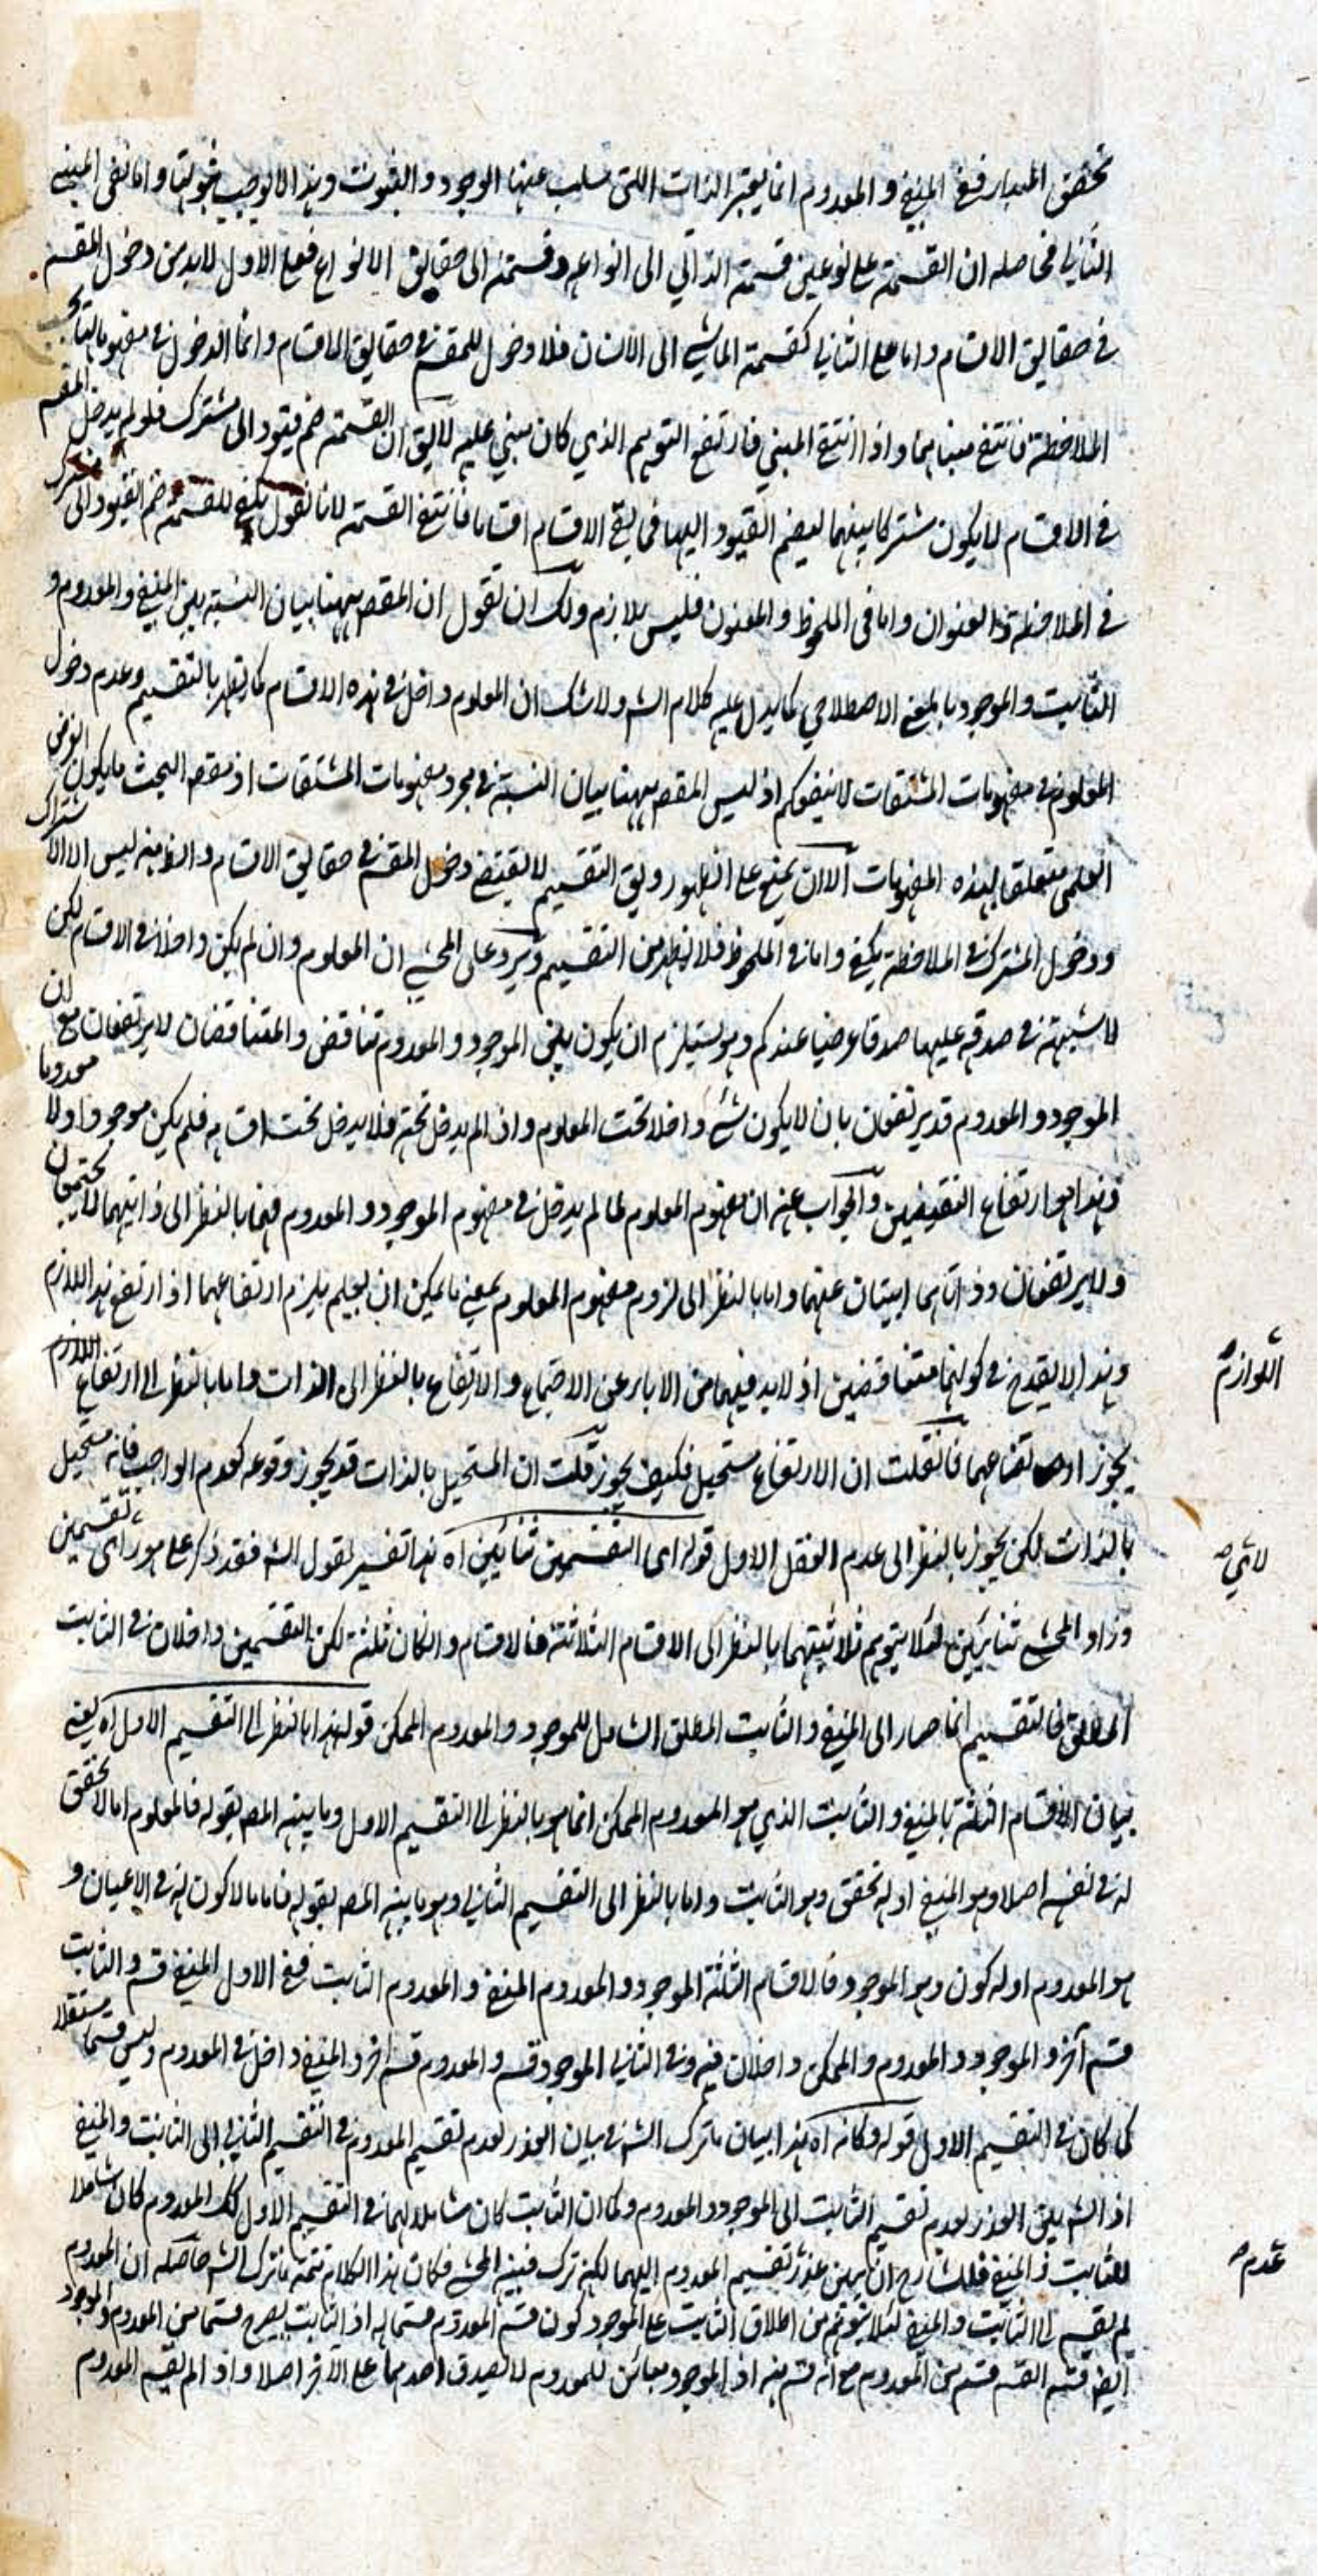 تحقق المبدا ففي المنفي و المعدوم انما يعتبر الذات اللتي سلب عنها الوجود و الثبوت وهذا لا يوجب ثبوتها و اما نفي المبني
الثاني فحاصله ان القسمة على نوعين قسمة الذاتي الى انواعه و قسمته الى حقايق الانواع فعلى الاول لابد من دخول المقسم
في حقايق الاقسام و اما على الثاني كقسمة الماشي الى الانسان فلا دخول للمقسم في حقايق الاقسام و انما الدخول في مفهومها بحسب
الملاحظة فانتفى مبناهما و اذا انتفى المبني فارتفع التوهم الذي كان يبنى عليه لايق ان القسمة ضم قيود الى مشترك فلو لم يدخل المقسم
في الاقسام لا يكون مشتركا بينهما ليضم القيود اليها فما بقي الاقسام اقساما فانتفى القسمة لانا نقول يكفي للقسمة ضم القيود الى مشترك
في الملاحظة و العنوان و اما في الملحوظ و المعنون فليس بلازم ولك ان تقول ان المقصم ههنا بيان النسبة بين المنفي و المعدوم و
الثابت و الموجود بالمعنى الاصطلاحي كما يدل عليه كلام الشه ولا شك ان المعلوم داخل في هذه الاقسام كما يظهر بالتقسيم و عدم دخول
المعلوم في مفهومات المشتقات لا ينفعكم اذ ليس المقصم ههنا بيان النسبة في مجرد مفهومات المشتقات اذ مقصم البحث ما يكون الغرض
العلمي متعلقا بهذه المفهومات الا ان يمنع على الظهور و يق التقسيم لا يقتضي دخول المقسم في حقايق الاقسام و الغرض منه ليس الا الاشتراك
و دخول المشترك في الملاحظة يكفي و اما في الملحوظ فلا يظهر من التقسيم و يرد على المحشي ان المعلوم و ان لم يكن داخلا في الاقسام لكن
لا شبهة في صدقه عليها صدقا عرضيا عندكم و هو يستلزم ان يكون بين الموجود و المعدوم تناقض و المتناقضان لا يرتفعان مع ان
الموجود و المعدوم قد يرتفعان بان لا يكون شيء داخلا تحت المعلوم و اذ الم يدخل تحته فلا يدخل تحت اقسامه فلم يكن موجودا ولا معدوما
و هذا هو ارتفاع النقيضين و الجواب عنه ان مفهوم المعلوم لما لم يدخل في مفهوم الموجود و المعدوم فهما بالنظر الى ذاتيهما لا يجتمعان
ولا يرتفعان و ذاتاهما ابيتان عنهما و اما بالنظر الى لزوم مفهوم المعلوم بمعنى ما يمكن ان يعلم يلزم ارتفاعهما اذ ارتفع هذا اللازم
و هذا لا يقدح في كونهما متناقضين اذ لابد فيهما من الاباء عن الاجتماع و الارتفاع بالنظر الى الذات و اما بالنظر الى ارتفاع اللازم
اللوازم صح
يجوز ارتفاعهما فانقلت ان الارتفاع مستحيل فكيف يجوز قلت ان المستحيل بالذات قد يجوز وقوعه كعدم الواجب فانه مستحيل
بالذات لكن يجوز بالنظر الى عدم العقل الاول قوله اى التقسيمين ثنائين اه هذا تفسير لقول الشه فقد ذكر على هو راى تقسيمين
و زاد المحشي ثنائيين لئلا يتوهم ثلاثيتهما بالنظر الى الاقسام الثلاثة فالاقسام و انكان ثلثة لكن القسمين داخلان في الثابت
المطلق فالتقسيم انما صار الى المنفي و الثابت المطلق الشامل للموجود و المعدوم الممكن قوله هذا بالنظر الى التقسيم الاول اه يعني
بيان الاقسام الثلثة بالمنفي و الثابت الذي هو المعدوم الممكن انما هو بالنظر الى التقسيم الاول و ما بينه المصم بقوله فالمعلوم اما لا تحقق
له في نفسه اصلا و هو المنفي او له تحقق و هو الثابت و اما بالنظر الى التقسيم الثاني و هو ما بينه المصم بقوله فاما ما لا كون له في الاعيان و
هو المعدوم او له كون و هو الموجود فالاقسام الثلثة الموجود و المعدوم المنفي و المعدوم الثابت ففي الاول المنفي قسم و الثابت
قسم آخر و الموجود و المعدوم و الممكن داخلان فيه و في الثاني الموجود قسم و المعدوم قسم اخر و المنفي داخل في المعدوم و ليس قسما مستقلا
كما كان في التقسيم الاول قوله و كانه اه هذا بيان ما ترك الشه في بيان العذر لعدم تقسيم المعدوم في التقسيم الثاني الى الثابت و المنفي
اذ الشه بين العذر لعدم تقسيم الثابت الى الموجود و المعدوم و كما ان الثابت كان شاملا لهما في التقسيم الاول كك المعدوم كان شاملا
للثابت و المنفي فللشارح ان يبين عذر تقسيم المعدوم اليهما لكنه ترك فبينه المحشي فكان هذا الكلام تتمة ما ترك الشه حاصله ان المعدوم
عدم صح
لم يقسم الى الثابت و المنفي لئلا يتوهم من اطلاق الثابت على الموجود كون قسم المعدوم قسما له اذ الثابت يصح قسما من المعدوم و الموجود
ايضا قسم القسم قسم من المعدوم مع انه قسم منه اذ الموجود مبائن للمعدوم لا يصدق احدهما على الآخر اصلا و اذ الم يقسم المعدوم